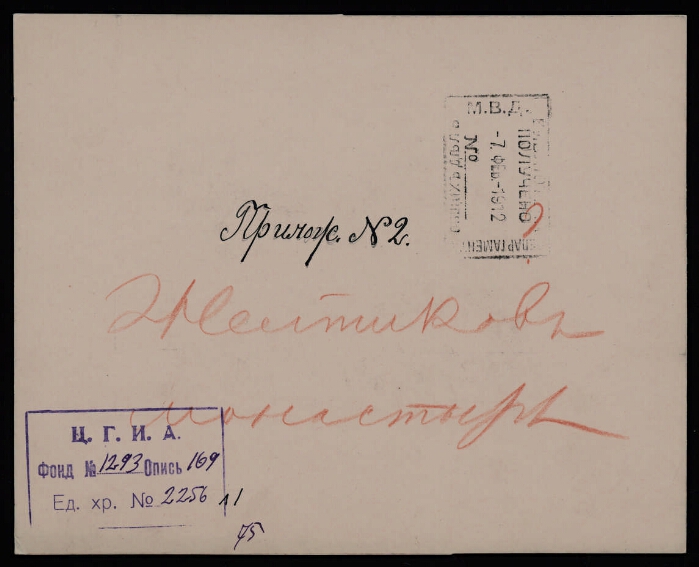 М.В.Д.
ПОЛУЧЕНО
-7. ФЕВ.-1912
№
ДЕПАРТАМЕНТ
Прилож. № 2.
Жестиковъ
монастырь
Ц. Г. И. А.
Фонд № 1293 Опись 169
Ед. хр. № 2256 л 1
75